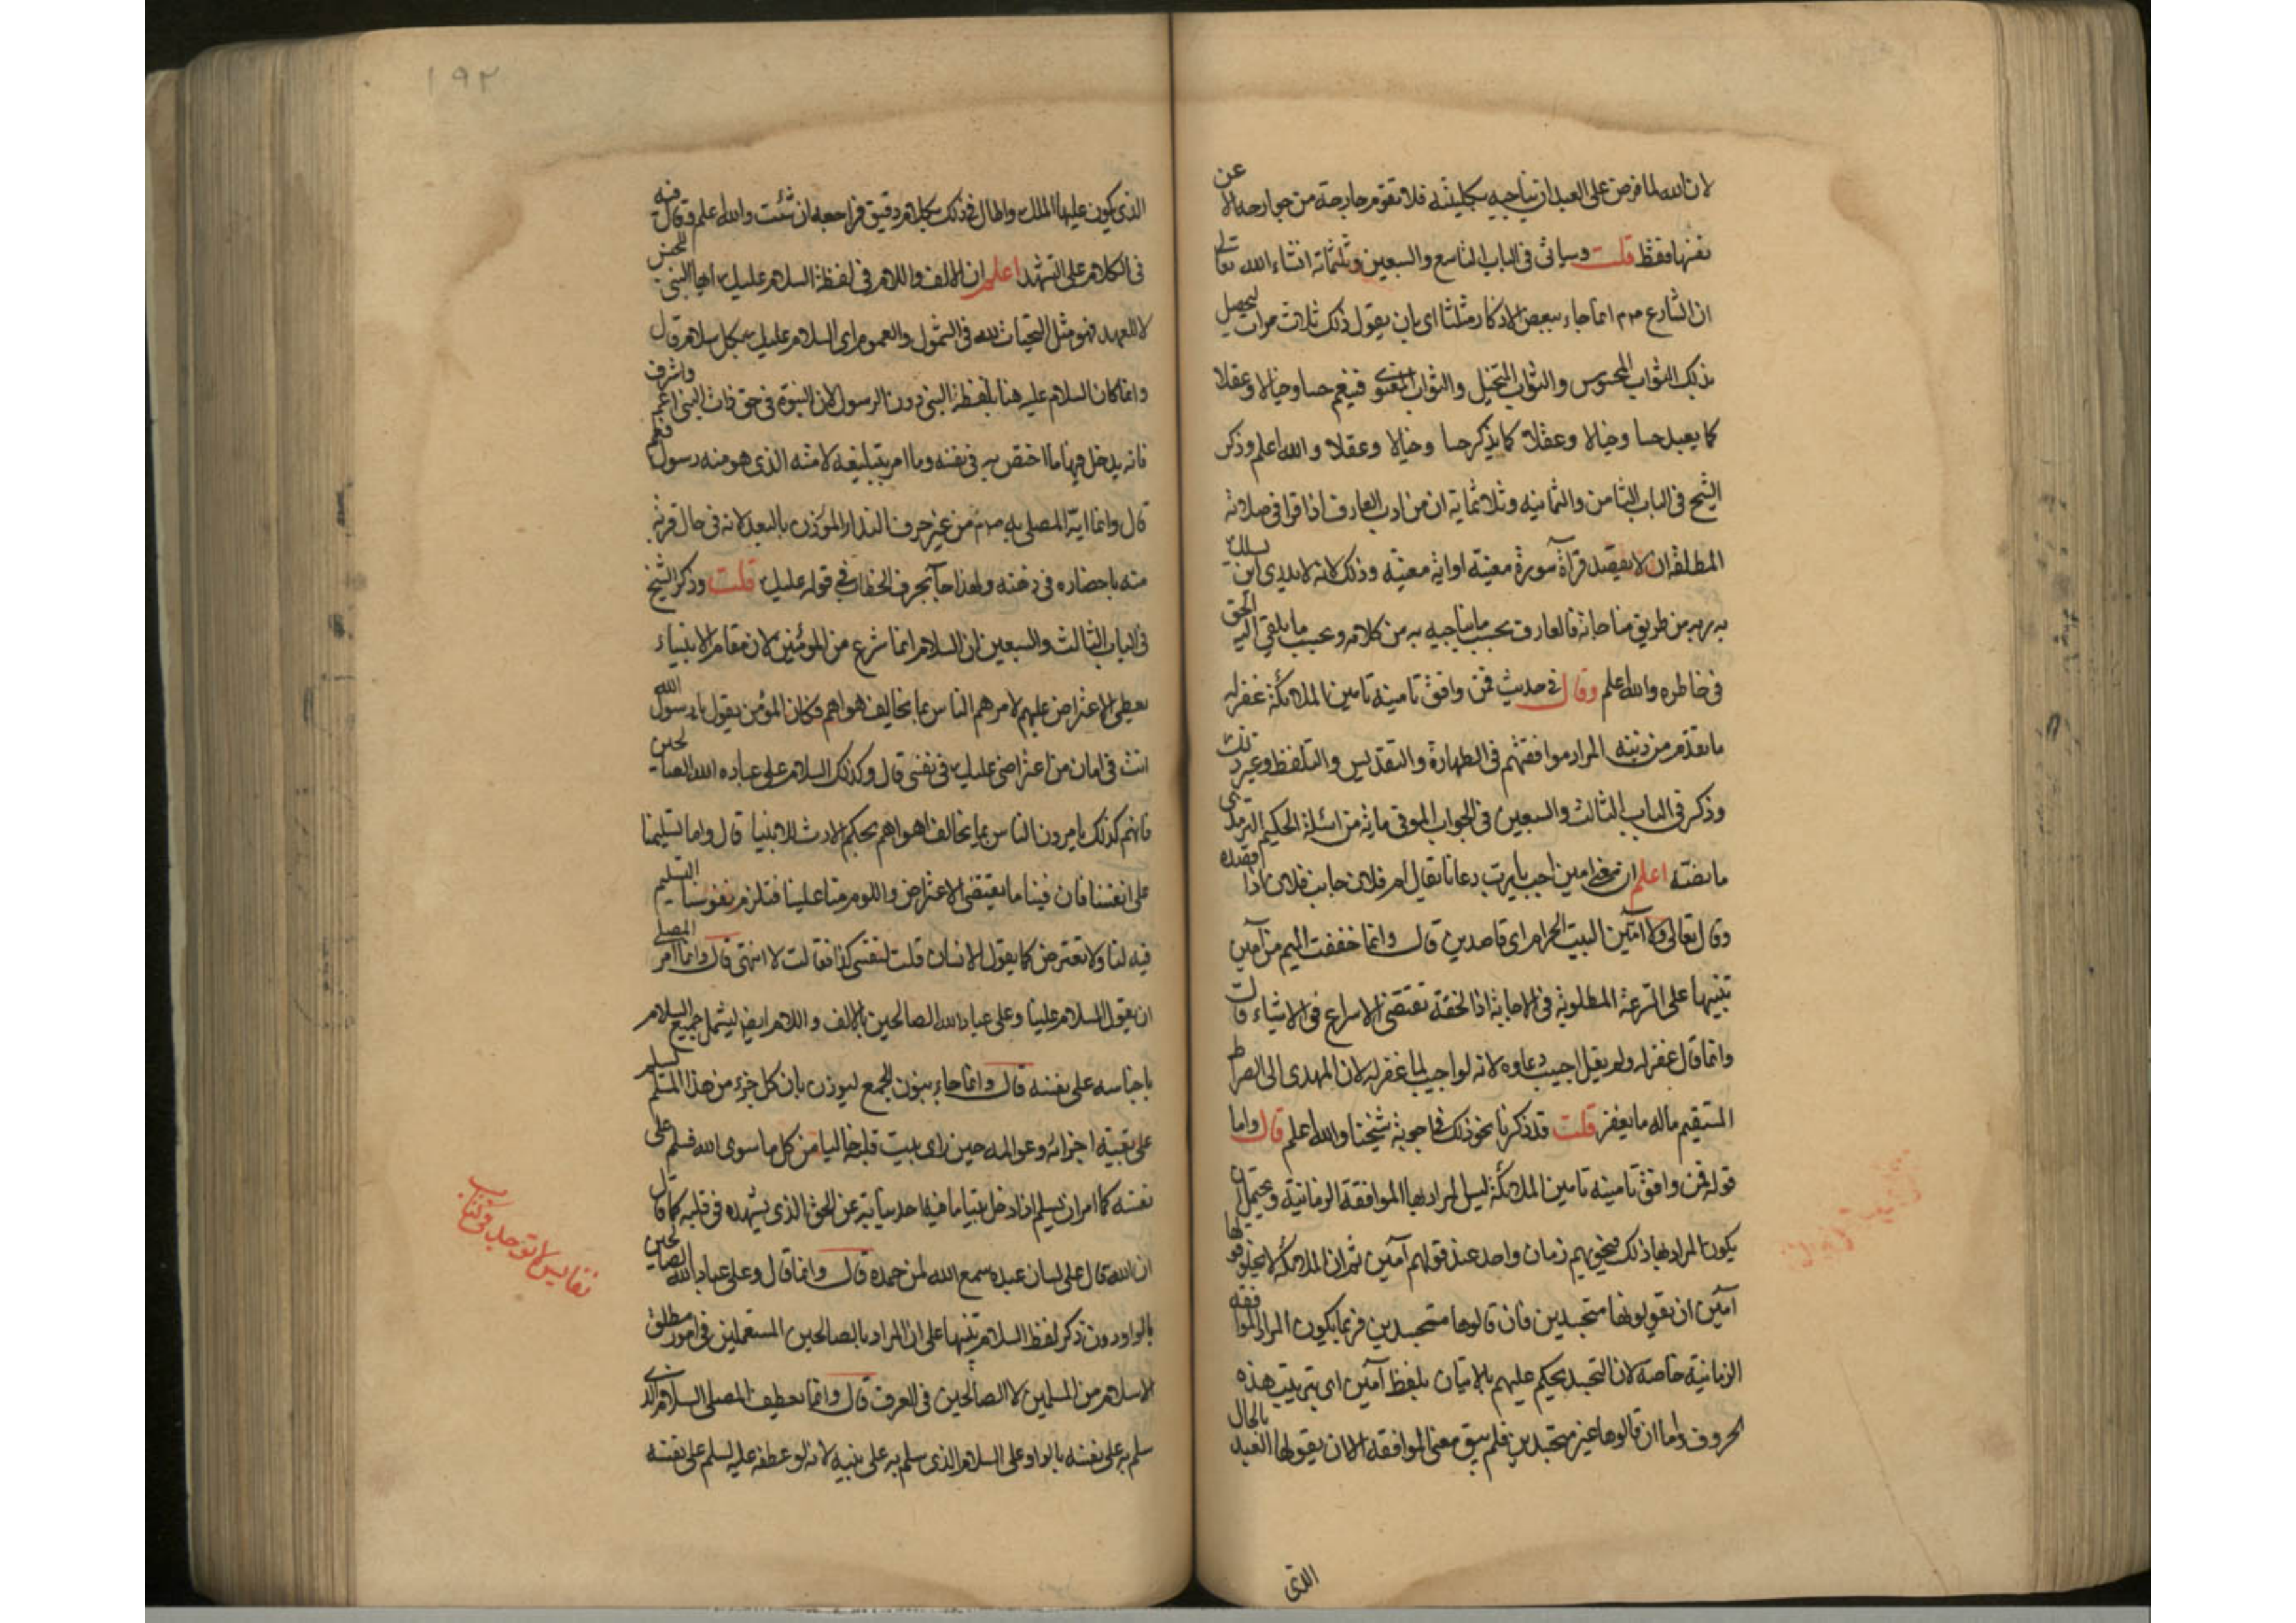 لان الله لما فرض على العبد ان يناجيه بكليته فلا تقوم جارحة من جوارحه الا عن
نفسها فقط قلت وسياتى فى الباب التاسع والسبعين وثلثماية انشاء الله تعالى
ان الشارع صم انما جاء ببعض الاذكار مثلثا اى بان يقول ذلك ثلاث مرات ليحصل
بذلك الثواب المحسوس والثواب المتخيل والثواب المعنوى فينعم حسا وخيالا وعقلا
كما يعبد حسا وخيالا وعقلا كما يذكر حسا وخيالا وعقلا والله اعلم وذكر
الشيخ فى الباب الثامن والثمانيه وثلاثماية ان من ادب العارف اذا قرا فى صلاته
المطلقة ان لا يقصد قرآة سورة معينة او اية معينة وذلك لانه لا يدرى اين يسلك
به ربه من طريق مناجاته فالعارف بحسب ما يناجيه به من كلامه وبحسب ما يلقى اليه الحق
فى خاطره والله اعلم وقال فى حديث فمن وافق تامينه تامين الملائكة غفر له
ما تقدم من ذنبه المراد موافقتهم فى الطهارة والتقديس والتلفظ وغير ذلك
وذكر فى الباب الثالث والسبعين فى الجواب الموفى ماية من اسئلة الحكيم الترمذى
ما نصه اعلم ان معنى امين اجب يا رب دعانا يقال ام فلان جانب فلان اذا قصده
وقال تعالى ولا آمين البيت الحرام اى قاصدين قال وانما خففت الميم من آمين
تنبيها على السرعة المطلوبة فى الاجابة اذ الخفة تقتضى الاسراع فى الاشياء قال
وانما قال غفر له ولم يقل اجيب دعاوه لانه لو اجيب لما غفر له لان المهدى الى الصراط
المستقيم ماله ما يغفر قلت قد ذكرنا نحو ذلك فى اجوبة شيخنا والله اعلم قال واما
قوله فمن وافق تامينه تامين الملائكة ليس المراد بها الموافقة الزمانية ويحتمل ان
يكون المراد بها ذلك فيحويهم زمان واحد عند قولهم آمين ثم ان الملائكة لا يخلو قولها
آمين ان يقولونها متجسدين فان قالوها متجسدين فربما يكون المراد الموافقه
الزمانية خاصة لان التجسد يحكم عليهم بالاتيان بلفظ آمين اى بترتيب هذه
الحروف واما ان قالوها غير متجسدين فلم يبق معنى الموافقة الا ان يقولها العبد بالحال
الذى
١٩٢
الذى يكون عليها الملك واطال فى ذلك بكلام دقيق فراجعه ان شئت والله اعلم وقال فيه
فى الكلام على التشهد اعلم ان الالف واللام فى لفظة السلام عليك ايها النبى للجنس
لا للعهد فهو مثل التحيات لله فى الشمول والعموم اى السلام عليك بكل سلام قال
وانما كان السلام عليه هنا بلفظة النبى دون الرسول لان النبوة فى حق ذات النبى اعم واشرف
فانه يدخل فيها ما اختص به فى نفسه وما امر بتبليغه لامته الذى هو منه رسول فعم
قال وانما اية المصلى به صم من غير حرف الندا المؤذن بالبعد لانه فى حال قربه
منه باحضاره فى ذهنه ولهذا جآ بحرف الخطاب فى قوله عليك قلت وذكر الشيخ
فى الباب الثالث والسبعين ان السلام انما شرع من المؤمنين لان مقام الانبياء
يعطى الاعتراض عليهم لامرهم الناس بما يخالف هواهم فكان المؤمن يقول يا رسول الله
انت فى امان من اعتراضى عليك فى نفسى قال وكذلك السلام على عباده الله الصالحين
فانهم كذلك يامرون الناس بما يخالف اهواهم بحكم الارث للانبيا قال واما تسليمنا
على انفسنا فان فينا ما يقتضى الاعتراض واللوم منا علينا فنلزم نفوسنا التسليم
فيه لنا ولا نعترض كما يقول الانسان قلت لنفسى كذا فقالت لا انتهى قال وانما امر المصلى
ان يقول السلام علينا وعلى عباد الله الصالحين بالالف واللام ايضا ليشمل جميع السلام
باجناسه على نفسه قال وانما جاء بنون الجمع ليوذن بان كل جزء من هذا المسلم يسلم
على بقية اجزائه وعوالمه حين راى بيت قلبه خاليا من كل ما سوى الله فسلم على
نفسه كما امر ان يسلم اذا دخل بيتا ما فيه احد نيابة عن الحق الذى يشهده فى قلبه كما قال
ان الله قال على لسان عبده سمع الله لمن حمده قال وانما قال وعلى عباد الله الصالحين
بالواو دون ذكر لفظ السلام تنبيها على ان المراد بالصالحين المستعملين فى امور مطلق
الاسلام من المسلمين لا الصالحين فى العرف قال وانما يعطف المصلى السلام الذى
سلم به على نفسه بالواو على السلام الذى سلم به على نبيه لانه لو عطفه عليه لسلم على نفسه
نفايس لا توجد فى كتاب